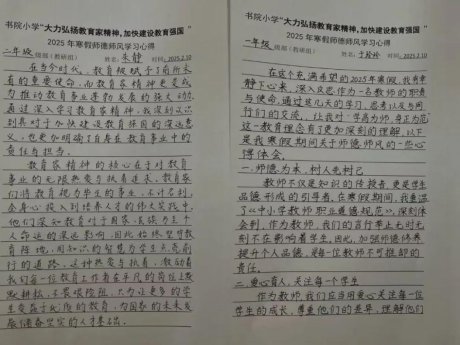 书院小学“大力弘扬教育家精神，加快建设教育强国”
2025年寒假师德师风学习心得
二年级 级部（教研组） 姓名：朱静 时间：2025.2.10
在当今时代，教育被赋予了前所未
有的重要使命，而教育家精神更是成
为推动教育事业蓬勃发展的强大动力。
通过深入学习教育家精神，我深刻认识
到其对于加快建设教育强国的深远意
义，也更加明确了自身在教育事业中的
责任与担当。
教育家精神的核心在于对教育
事业的无限热爱与执着追求。教育家
们将教育视为毕生的事业，不计名利，
全身心投入到培养人才的伟大实践中。
他们深知教育对于国家、民族乃至个
人命运的深远影响，因此始终坚守教
育阵地，用知识的智慧为学生点亮前
行的道路。这种热爱与执着，激励着
我们每一位教育工作者在平凡的岗位上默
默耕耘，不畏艰险阻，只为让更多的学
生受益于优质的教育，为国家的未来发
展储备坚实的人才基础。
书院小学“大力弘扬教育家精神，加快建设教育强国”
2025年寒假师德师风学习心得
一年级 级部（教研组） 姓名： 时间：2025.2.10
在这个充满希望的2025年寒假，我有幸
静下心来，深入反思作为一名教师的职责
与使命，通过这几天的学习、思考以及与同
行们的交流，让我对“学高为师，身正为范”
这一教育理念有了更加深刻的理解，以下
是我寒假期间关于师德师风的一些心
得体会。
一、师德为本，树人先树己
教师不仅是知识的传授者，更是学生
品德形成的引导者，在寒假期间，我重温
了《中小学教师职业道德规范》，深刻体
会到，作为教师，我们的言行举止无时无
刻不在影响着学生。因此，加强师德修养
提升个人品德，是每一位教师不可推卸的
责任。
二、爱心育人，关注每个学生
作为教师，我们应当用爱心关注每一位
学生的成长，尊重他们的差异，理解他们